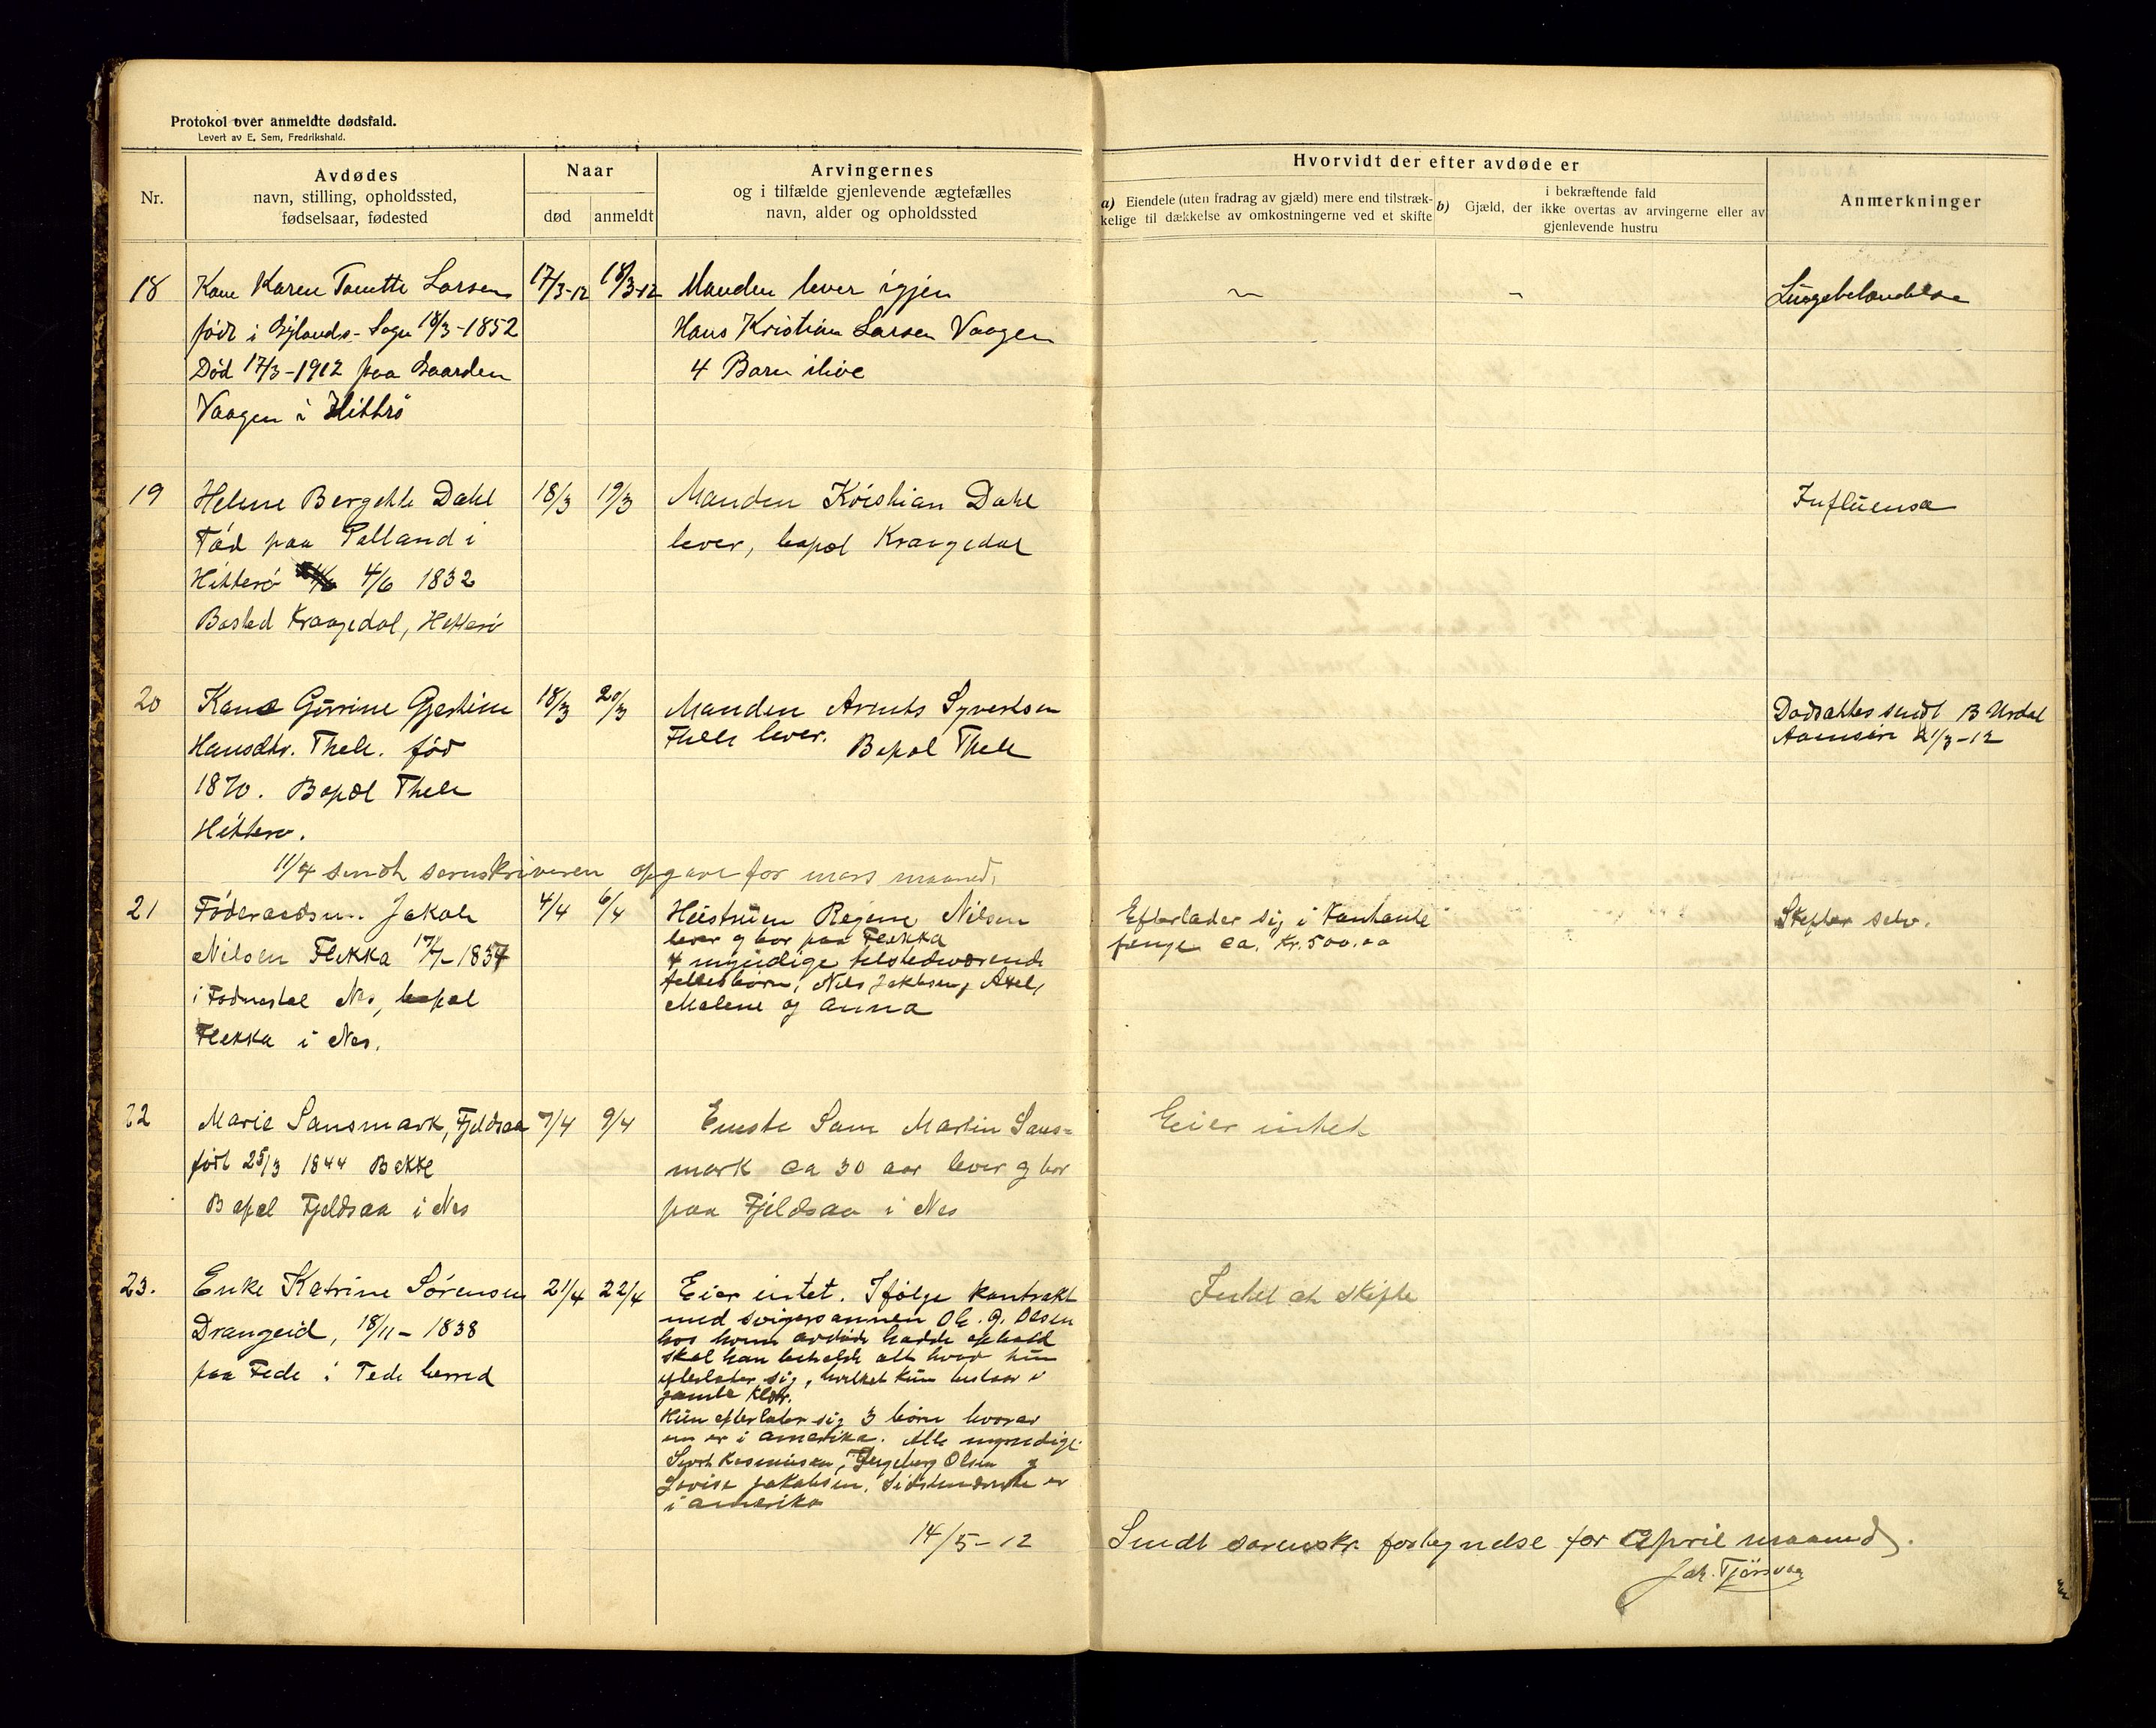 Protokol over anmeldte dødsfald.
Levert av E. Sem, Fredrikshald.
Nr.
Avdødes
navn, stilling, opholdssted,
fødselsaar, fødested
Naar
død
anmeldt
Arvingernes
og i tilfælde gjenlevende ægtefælles
navn, alder og opholdssted
Hvorvidt der efter avdøde er
a) Eiendele (uten fradrag av gjæld) mere end tilstræk-
kelige til dækkelse av omkostningerne ved et skifte
b) Gjæld, der i bekræftende fald
ikke overtas av arvingerne eller av
gjenlevende hustru
Anmerkninger
18
Kone Karen Tomette Larsen
født i Gylands-Sogn 18/3-1852
Død 17/3-1912 paa Gaarden
Vaagen i Hitterö
17/3-12
18/3-12
Manden lever igjen
Hans Kristian Larsen Vaagen
4 Barn ilive
Lungebetændelse
19
Helene Bergithe Dahl
Fød paa Palland i
Hitterö 4/6 1832
Bosted Kraagedal, Hitterö
18/3
19/3
Manden Kristian Dahl
lever, bopæl Kraagedal
Influensa
20
Kone Gurine Gjertine
Hansdtr. Thele. fød
1870. Bopæl Thele
Hitterø.
18/3
20/3
Manden Arnts Syvertsen
Thele lever. Bopæl Thele
Dødsattes sendt B Urdal
Aamsin 21/3-12
11/4 sendt sorenskriveren opgave for mars maaned.
21
Føderaadsm. Jakob
Nilsen Flikka 17/7-1834
i Fodnestøl Nes, bopæl
Flikka i Nes.
4/4
6/4
Hustruen Regine Nilsen
lever og bor paa Flikka
4 myndige tilstedeværende
fellesbørn, Nils Jakobsen, Axel,
Malene og Anna
Efterlader sig i kontante
penge ca. kr. 500.00
Skifter selv.
22
Marie Sansmark, Fjeldsaa
født 25/3 1844 Bekke
Bopæl Fjeldsaa i Nes
7/4
9/4
Eneste Søn Martin Sans=
mark ca 30 aar lever og bor
paa Fjeldsaa i Nes
Eier intet
23.
Enke Katrine Sørensen
Drangeid, 18/11-1838
paa Fede i Fede herred
21/4
22/4
Eier intet. Ifølge kontrakt
med svigersønnen Ole G. Olsen
hos hvem avdøde hadde ophold
skal han beholde alt hvad hun
efterlater sig, hvilket kun bestaar i
gamle klær.
Hun efterlater sig 3 børn hvorav
en er i Amerika. Alle myndige
Rasmussen, Ingeborg Olsen og
Lovise Jakobsen. Sidstnævnte er
i Amerika
Intet at skifte
14/5-12
Sendt sorenskr. fortegnelse for April maaned.
Joh. Tjørsvaag